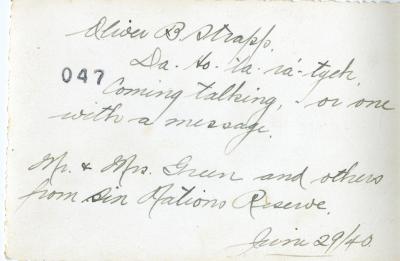 Oliver B Strapp.
Da. to. la. rá. tyeh.
047
Coming talking, - or one
with a message.
Mr. & Mrs. Green and others
from Sin Nations Reserve.
June 29/40.